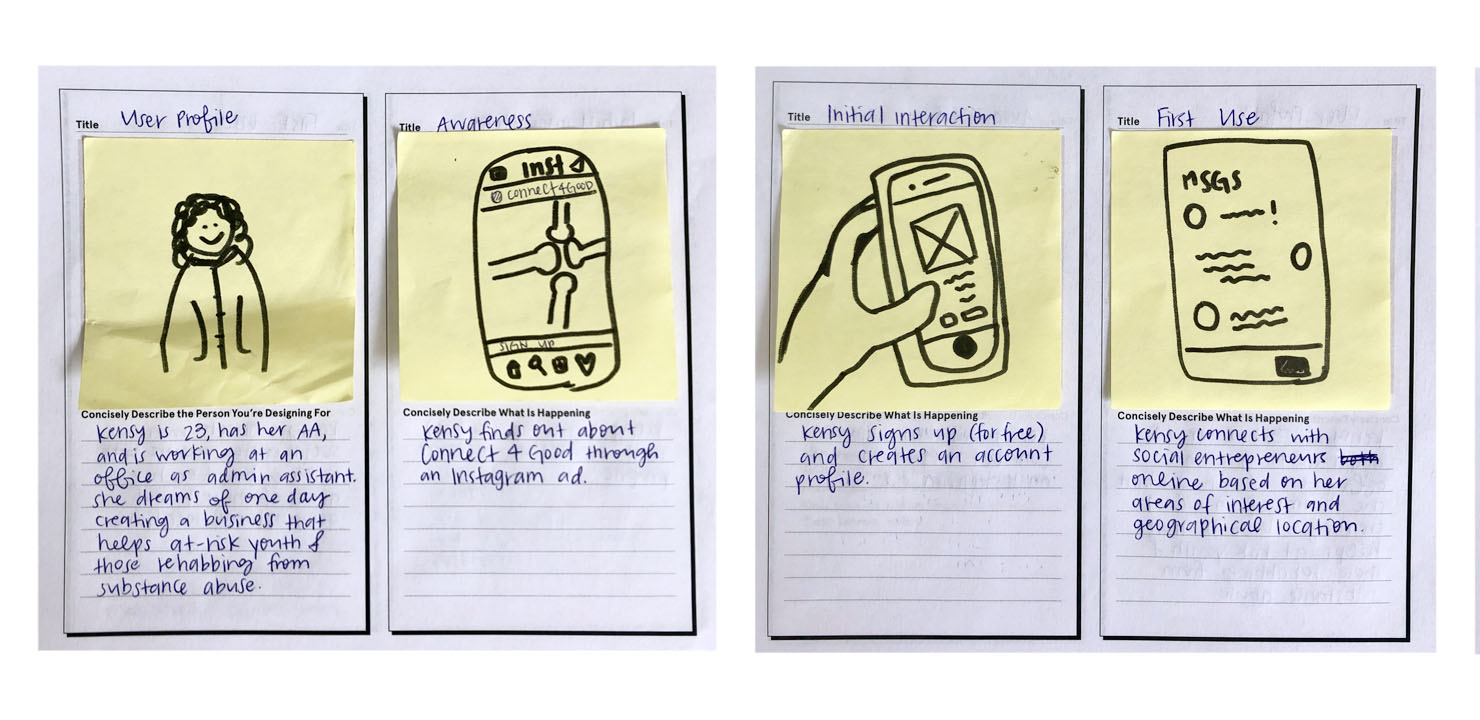 Title User Profile
Concisely Describe the Person You're Designing For
Kensy is 23, has her AA,
and is working at an
office as admin assistant.
she dreams of one day
creating a business that
helps at-risk youth &
those rehabbing from
substance abuse.
Title Awareness
Inst
Connect4Good
SIGN UP
Concisely Describe What Is Happening
Kensy finds out about
Connect 4 Good through
an Instagram ad.
Title Initial interaction
Concisely Describe What Is Happening
Kensy signs up (for free)
and creates an account
profile.
Title First Use
MSGS
!
Concisely Describe What Is Happening
Kensy connects with
social entrepreneurs
online based on her
areas of interest and
geographical location.